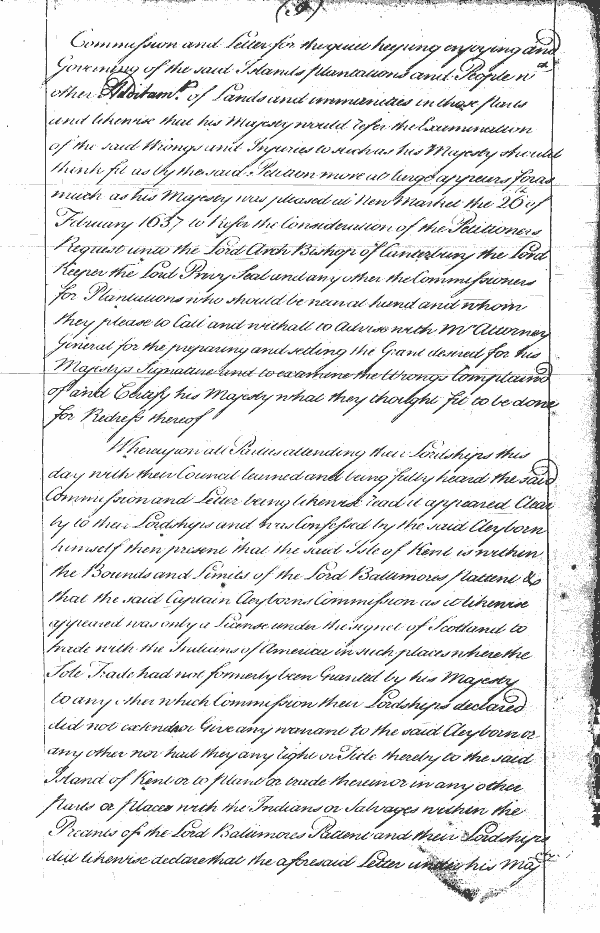 (9)
Commission and Letter for the quiet keeping enjoying and
Governing of the said Islands plantations and People wth
other of Lands and immunities in those parts
and likewise that his Majesty would refer the Examination
of the said Wrongs and Injuries to such as his Majesty should
think fit as by the said Petition more at large appears foras
much as his Majesty was pleased at New Market the 26th of
February 1637 to Refer the Consideration of the Petitioners
Request unto the Lord Arch Bishop of Canterbury the Lord
Keeper the Lord Privy Seal and any other the Commissioners
for Plantations who should be near at hand and whom
they please to Call and withall to Advise with Mr Attorney
General for the preparing and setling the Grant desired for his
Majestys Signature and to examine the Wrongs Complained
of and Certify his Majesty what they thought fit to be done
for Redress thereof
Whereupon all Parties attending their Lordships this
day with their Council learned and being fully heard the said
Commission and Letter being likewise read it appeared Clear
ly to their Lordships and was Confessed by the said Cleyborn
himself then present that the said Isle of Kent is within
the Bounds and Limits of the Lord Baltimores Pattent &
that the said Captain Cleyborns Commission as it likewise
appeared was only a License under the signet of Scotland to
trade with the Indians of America in such places where the
Sole Trade had not formerly been Granted by his Majesty
to any other which Commission their Lordships declared
did not extend or Give any warrant to the said Cleyborn or
any other nor had they any right or Title thereby to the said
Island of Kent or to plant or trade there in or in any other
parts or places with the Indians or Salvages within the
Precints of the Lord Baltimores Patent and their Lordships
did likewise declare that the aforesaid Letter under his Majtys